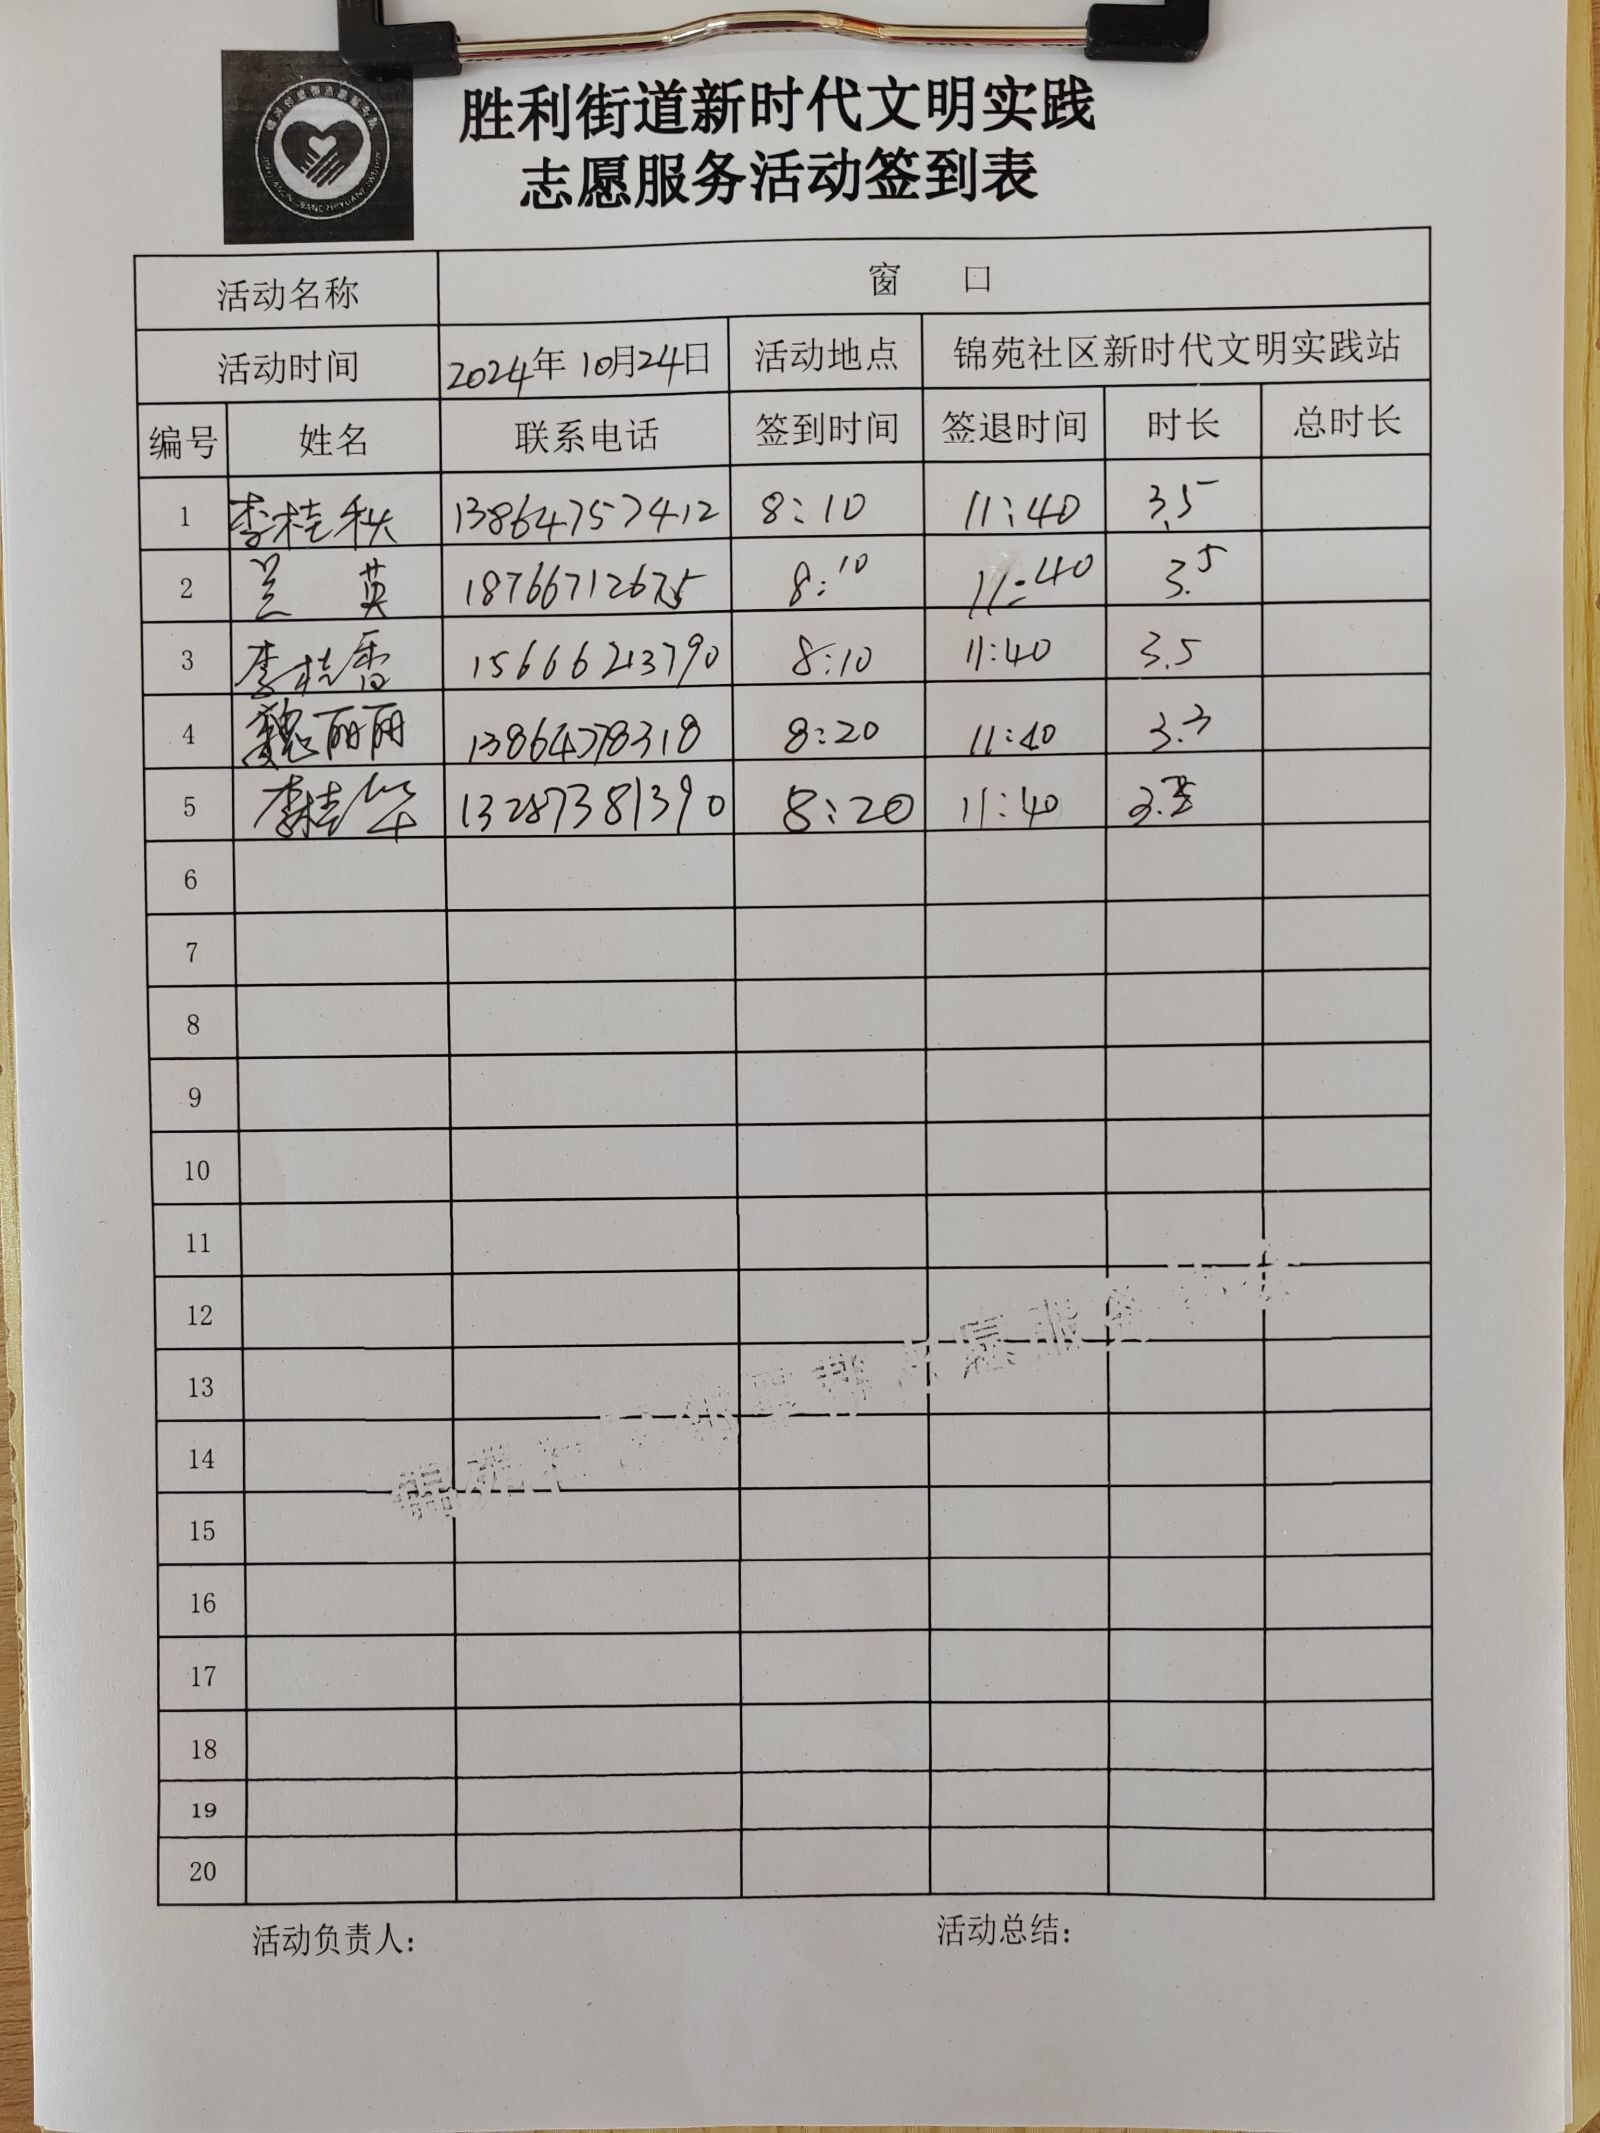 胜利街道新时代文明实践
志愿服务活动签到表
活动名称 窗 口
活动时间 2024年10月24日 活动地点 锦苑社区新时代文明实践站
编号 姓名 联系电话 签到时间 签退时间 时长 总时长
1 李桂秋 13864757412 8:10 11:40 3.5
2 兰 英 18766712675 8:10 11:40 3.5
3 李桂香 15666213790 8:10 11:40 3.5
4 魏丽丽 13864778318 8:20 11:40 3.3
5 李桂华 13287381390 8:20 11:40
6
7
8
9
10
11
12
13
14
15
16
17
18
19
20
活动负责人： 活动总结：